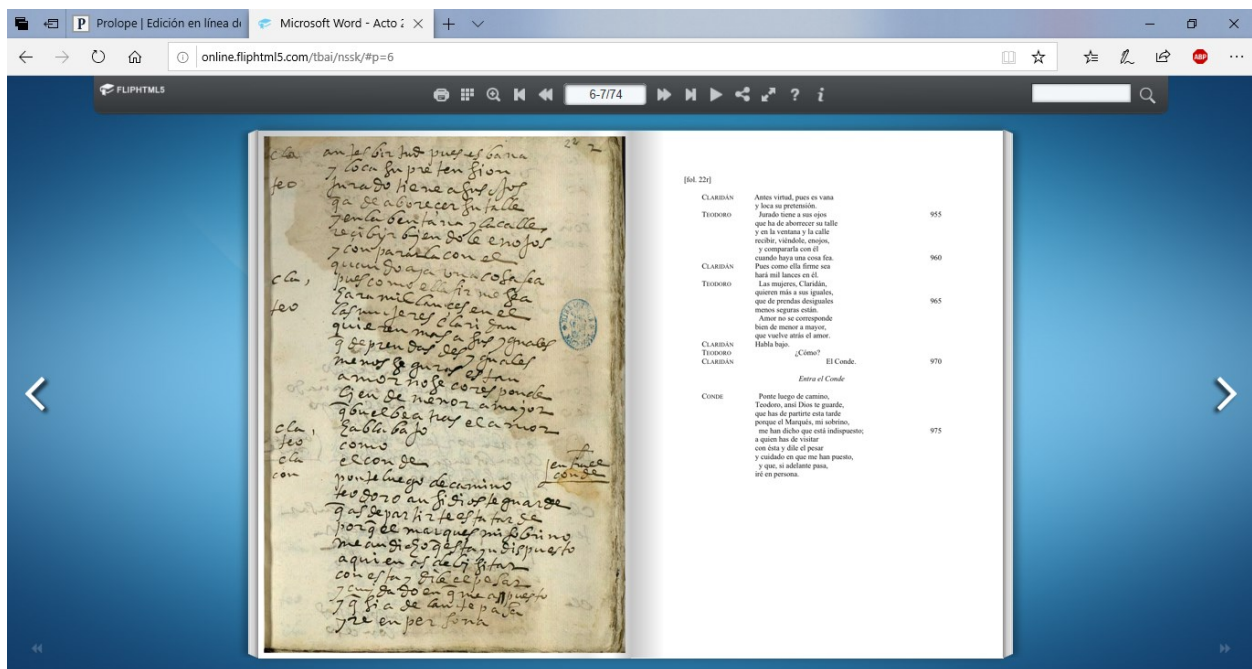 Prolope | Edición en línea d
Microsoft Word - Acto 2
online.fliphtml5.com/tbai/nssk/#p=6
ABP
FLIPHTML5
6-7/74
22 2
cla antes birtud pues es bana
y loca su pretension
teo jurado tiene a sus ojos
q a de aborecer su talle
y en la bentana y la calle
recibir byendole enojos
y compararla con el
quando aja una cosa fea
cla, pues como ella firme sea
hara mil lances en el
teo las mujeres claridan
quieren mas a sus yguales
q de prendas desyguales
menos seguras estan
amor no se coresponde
bien de menor a mayor
q buelbe atras el amor
cla, habla bajo
teo como
cla el conde
entra el
conde
con ponte luego de camino
teodoro ansi dios te guarde
q as de partirte esta tarde
porq el marques mi sobrino
me an dicho q esta yndispuesto
a quien as de bisitar
con esta y dile el pesar
y cuydado en q me an puesto
y q si adelante pasa
yre en persona
[fol. 22r]
CLARIDÁN Antes virtud, pues es vana
y loca su pretensión.
TEODORO Jurado tiene a sus ojos 955
que ha de aborrecer su talle
y en la ventana y la calle
recibir, viéndole, enojos,
y compararla con él
cuando haya una cosa fea. 960
CLARIDÁN Pues como ella firme sea
hará mil lances en él.
TEODORO Las mujeres, Claridán,
quieren más a sus iguales,
que de prendas desiguales 965
menos seguras están.
Amor no se corresponde
bien de menor a mayor,
que vuelve atrás el amor.
CLARIDÁN Habla bajo.
TEODORO ¿Cómo?
CLARIDÁN El Conde. 970
Entra el Conde
CONDE Ponte luego de camino,
Teodoro, ansí Dios te guarde,
que has de partirte esta tarde
porque el Marqués, mi sobrino,
me han dicho que está indispuesto; 975
a quien has de visitar
con ésta y dile el pesar
y cuidado en que me han puesto,
y que, si adelante pasa,
iré en persona.